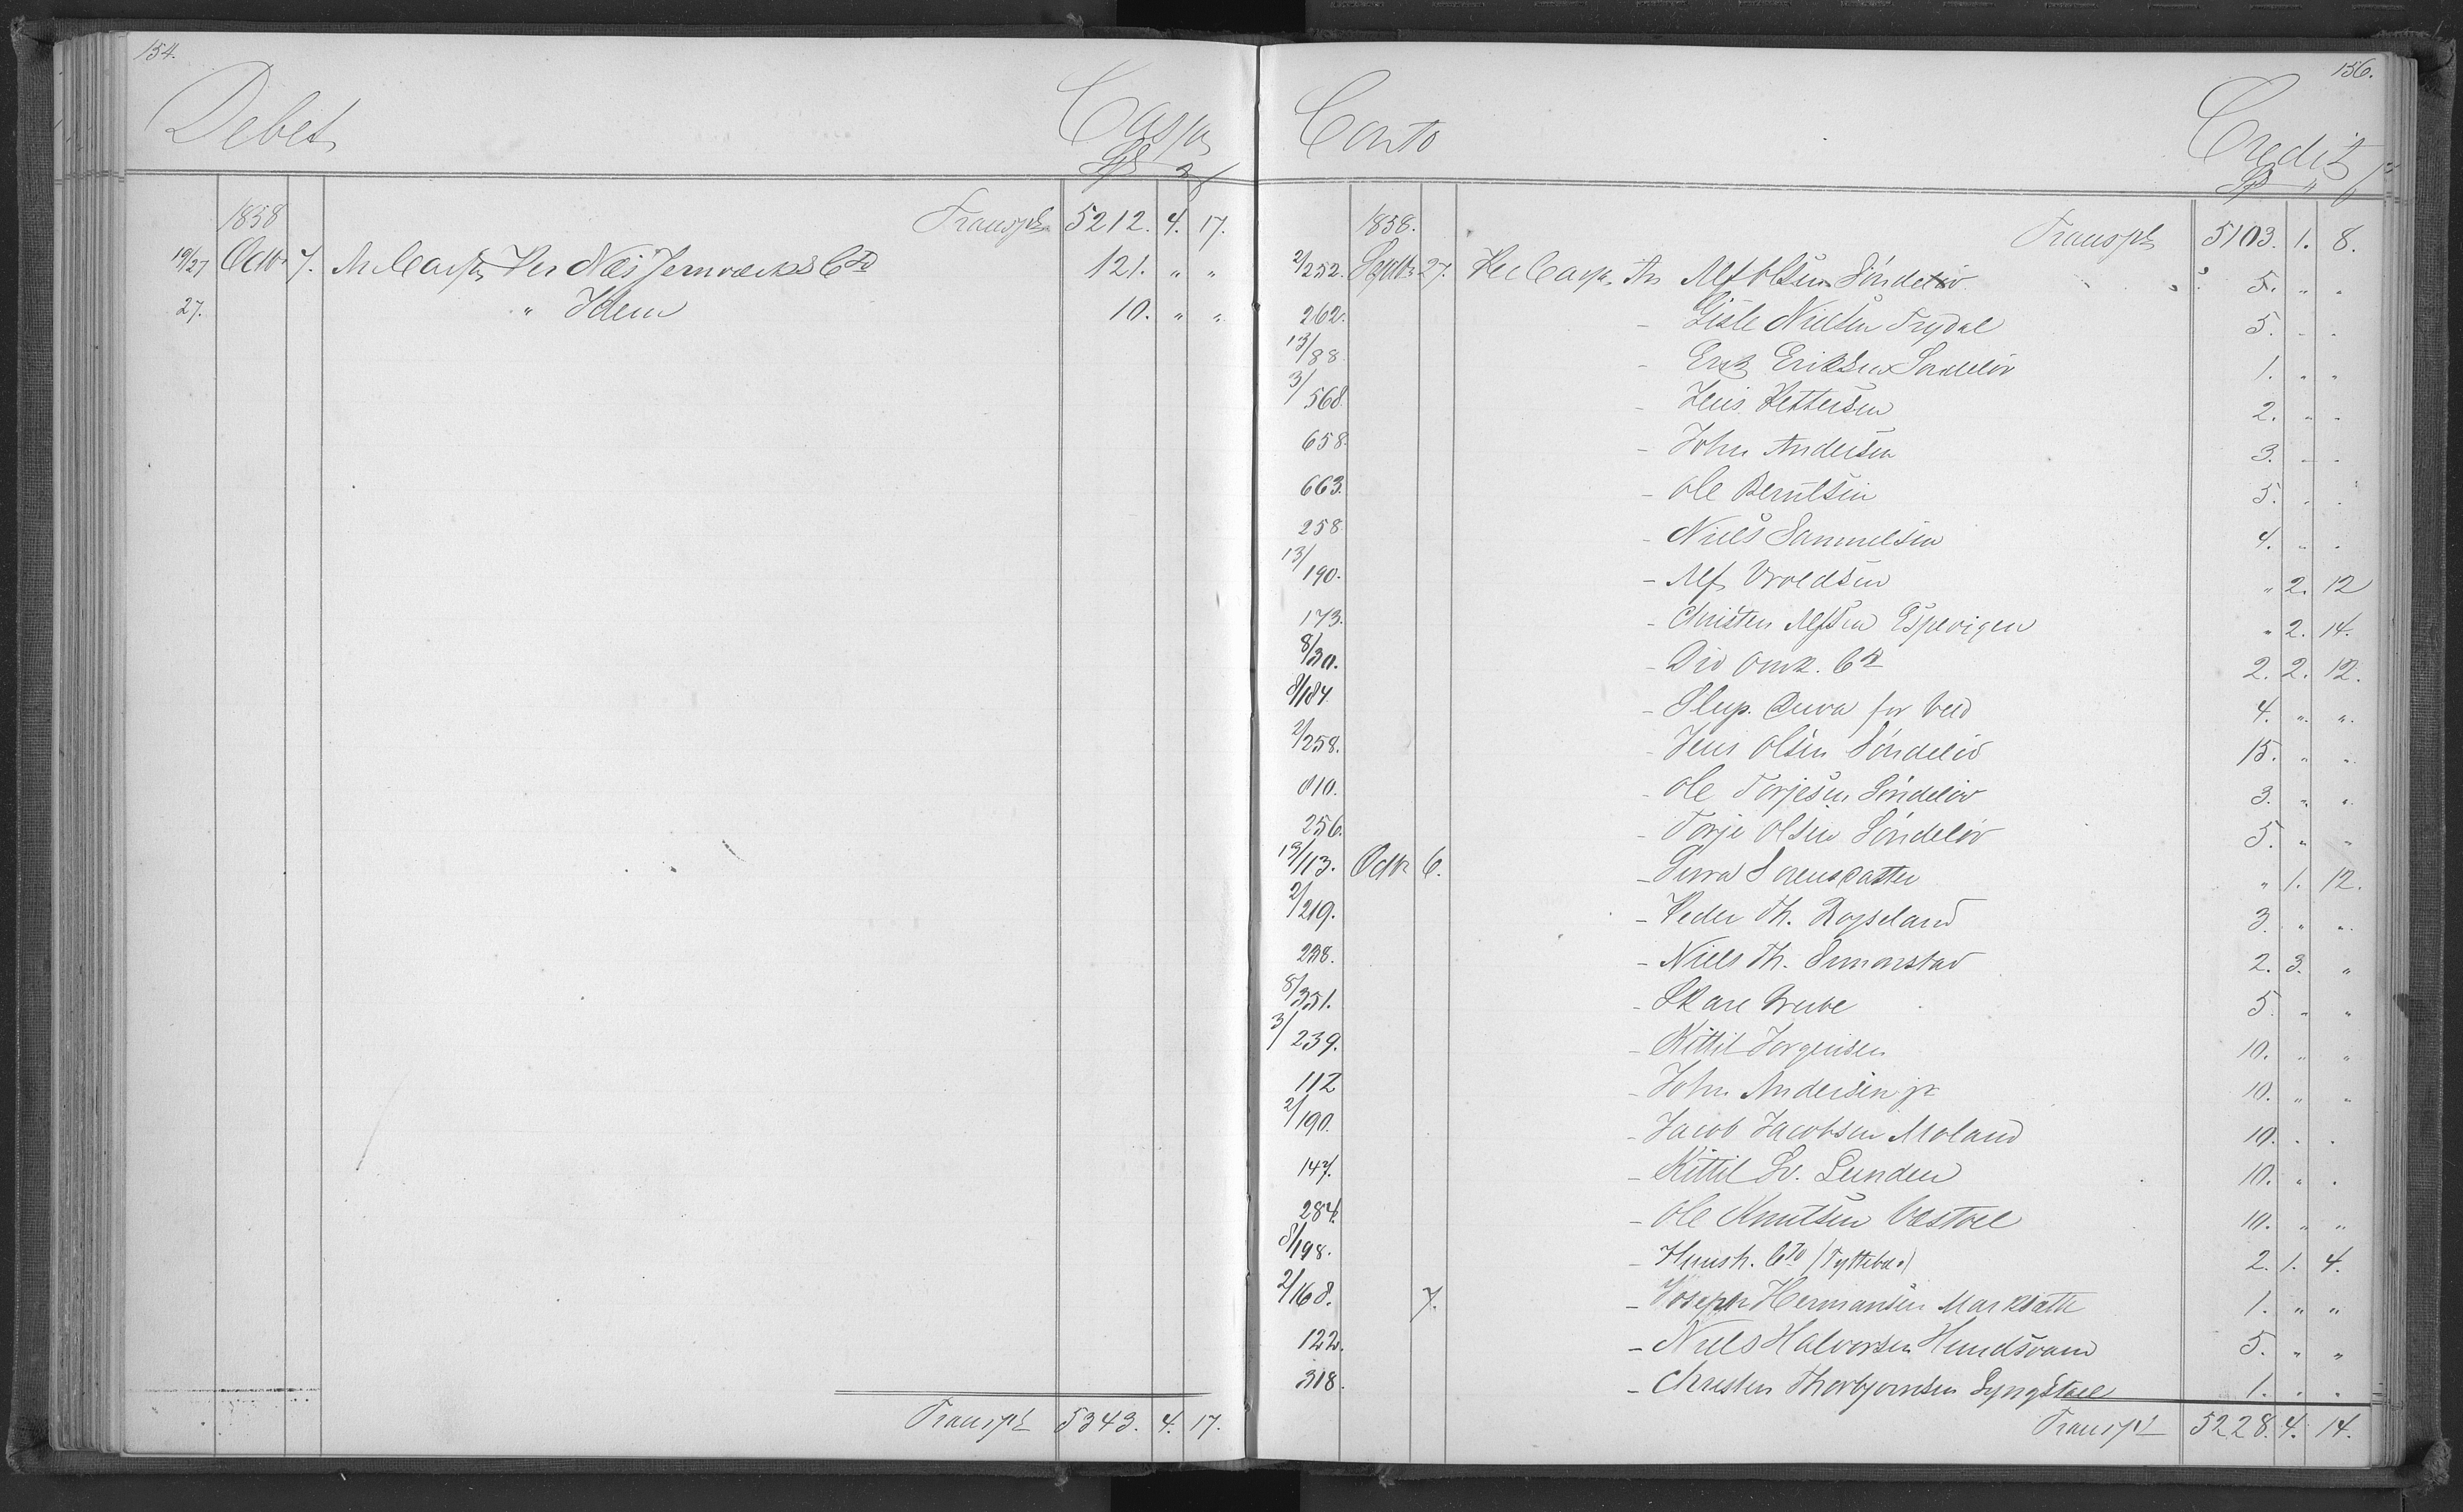 154.
Debet Cassa
Spd " ß
1858 Transpt 5212. 4. 17.
19/27 Octbr 7. An Cassa Per Næs Jernværks Cto 121. " "
27. " Idem 10. " "
Transpt 5343. 4. 17.
156.
Conto Credit
Spd " ß
1858. Transpt 5103. 1. 8.
2/252. Septbr 27. Per Cassa An Alf Olsen Söndeløv 5. " "
262. - Gisle Nielsen Trydal 5. " "
13/88. - Erik Eriksen Sondeløv 1. " "
3/568 - Jens Pettersen 2. " "
658. - John Andersen 3. " "
663. - Ole Berulsen 5. " "
258 - Niels Samuelsen 4. " "
13/190. - Alf Vroldsen " 2. 12
173. - Christen Alfsen Espevigen " 2. 14.
8/30. - Div Omk. Cto 2. 2. 12.
8/184 - Slup. Duva for Ved 4. " "
2/258. - Jens Olsen Söndeløv 15. " "
810. - Ole Torjesen Söndeløv 3. " "
256. - Torje Olsen Söndeløv 5. " "
13/113. Octbr 6. - Sorensdatter " 1. 12.
2/219. - Peder Th. Rogseland 3. " "
238. - Niels Th. Simonstad 2. 3. "
8/351. - Skare Grube 5. " "
3/239. - Kittil Jorgensen 10. " "
112 - John Andersen jr 10. " "
2/190. - Jacob Jacobsen Moland 10. " "
147. - Kittil Sv. Lunden 10. " "
284. - Ole Knutsen Vestøl 10. " "
8/198. - Huush. Cto (Tyttebær) 2. 1. 4.
2/168. 7. - Joseph Hermansen Marksæth 1. " "
122. - Niels Halvorsen Hundsvand 5. " "
318. - Christen Thorbjornsen Lyngstøl 1. " "
Transpt 5228. 4. 14.